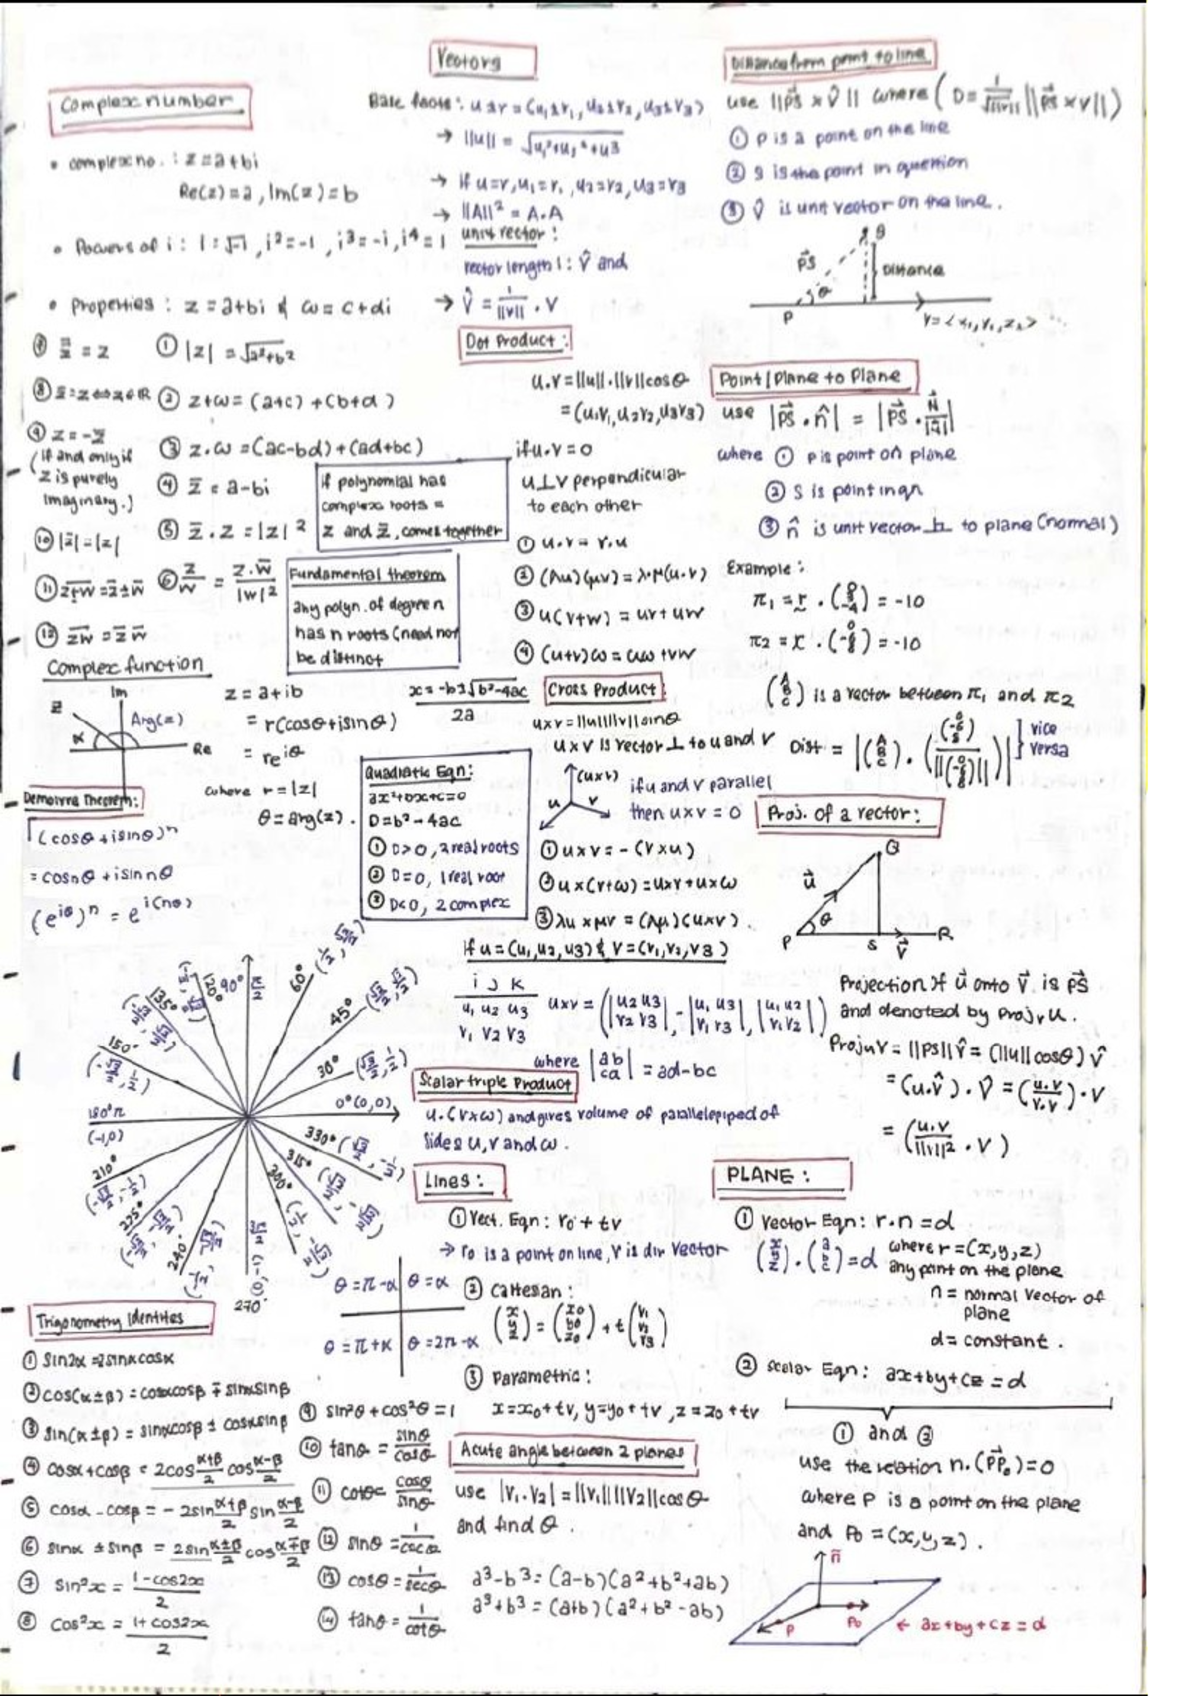 Complex number
• complex no. : z = a+bi
Re(z) = a , Im(z) = b
• Powers of i : i = √-1 , i² = -1 , i³ = -i , i⁴ = 1
• Properties : z = a+bi & ω = c+di
① |z| = √a²+b²
② z+ω = (a+c) + (b+d)
③ z.ω = (ac-bd) + (ad+bc)
④ z̅ = a-bi
⑤ z̅.z = |z|²
⑥ z/w = z.w̅/|w|²
z̿ = z
⑧ z̅ = z ⇔ z ∈ R
⑨ z = -z̅
(if and only if
z is purely
imaginary.)
⑩ |z̅| = |z|
⑪ z±w = z̅ ± w̅
⑫ zw = z̅ w̅
if polynomial has
complex roots =
z and z̅, comes together
Fundamental theorem
any polyn. of degree n
has n roots (need not
be distinct
Complex function
Im
z
Arg(z)
α
Re
z = a+ib
= r(cosθ+isinθ)
= re^iθ
where r = |z|
θ = arg(z).
x = -b±√b²-4ac / 2a
Quadratic Eqn:
ax²+bx+c=0
D = b²-4ac
① D>0, 2 real roots
② D=0, 1 real root
③ D<0, 2 complex
Demoivre Theorem:
(cosθ + isinθ)ⁿ
= cosnθ + isin nθ
(e^iθ)ⁿ = e^i(nθ)
90° π/2
60°
45°
30° (√3/2, 1/2)
0° (0,0)
330° (√3/2, -1/2)
315°
300°
3π/2 (0,-1)
270°
240°
225°
210° (-√3/2, -1/2)
180° π
(-1,0)
150° (-√3/2, 1/2)
135°
120°
θ = π-α
θ = α
θ = π+α
θ = 2π-α
Trigonometry Identities
① Sin2α = 2sinαcosα
② cos(α±β) = cosαcosβ ∓ sinαsinβ
③ sin(α±β) = sinαcosβ ± cosαsinβ
④ cosα+cosβ = 2cos α+β/2 cos α-β/2
⑤ cosα - cosβ = - 2sin α+β/2 sin α-β/2
⑥ sinα ± sinβ = 2sin α±β/2 cos α∓β/2
⑦ sin²x = 1-cos2x / 2
⑧ cos²x = 1+cos2x / 2
⑨ sin²θ + cos²θ = 1
⑩ tanθ = sinθ/cosθ
⑪ cotθ = cosθ/sinθ
⑫ sinθ = 1/cscθ
⑬ cosθ = 1/secθ
⑭ tanθ = 1/cotθ
Vectors
Basic facts : u±v = (u₁±v₁, u₂±v₂, u₃±v₃)
→ ||u|| = √u₁²+u₂²+u3
→ if u=v, u₁=v₁, u₂=v₂, u₃=v₃
→ ||A||² = A.A
unit vector :
vector length 1 : v̂ and
→ v̂ = 1/||v|| . v
Dot Product :
u.v = ||u||.||v||cosθ
= (u₁v₁, u₂v₂, u₃v₃)
if u.v = 0
u⊥v perpendicular
to each other
① u.v = v.u
② (λu)(μv) = λ.μ(u.v)
③ u(v+w) = uv+uw
④ (u+v)ω = uω + vw
Cross Product :
u×v = ||u||||v||sinθ
u×v is vector ⊥ to u and v
(u×v)
u
v
if u and v parallel
then u×v = 0
① u×v = -(v×u)
② u×(v+ω) = u×v + u×ω
③ λu × μv = (λμ)(u×v)
if u = (u₁,u₂,u₃) & v = (v₁,v₂,v₃)
i j k
u₁ u₂ u₃
v₁ v₂ v₃
u×v = (|u₂ u₃ / v₂ v₃|, -|u₁ u₃ / v₁ v₃|, |u₁ u₂ / v₁ v₂|)
where |ab / ca| = ad-bc
Scalar triple Product
u.(v×ω) and gives volume of parallelepiped of
sides u,v and ω.
Lines :
① Vect. Eqn : r₀ + tv
→ r₀ is a point on line, v is dir vector
② Cartesian :
(x y z) = (x₀ y₀ z₀) + t(v₁ v₂ v₃)
③ Parametric :
x = x₀+tv, y = y₀+tv, z = z₀+tv
Acute angle between 2 planes
use |v₁.v₂| = ||v₁||||v₂||cosθ
and find θ.
a³-b³ = (a-b)(a²+b²+ab)
a³+b³ = (a+b)(a²+b²-ab)
Distance from point to line
use ||PS × v̂|| where (D = 1/||v|| ||PS × v||)
① P is a point on the line
② S is the point in question
③ v̂ is unit vector on the line.
PS
S
θ
Distance
P
v = <x₁, y₁, z₁>
Point/Plane to Plane
use |PS . n̂| = |PS . n/|n||
where ① P is point on plane
② S is point in qn
③ n̂ is unit vector ⊥ to plane (normal)
Example :
π₁ = r . = -10
π₂ = r . = -10
(A B C) is a vector between π₁ and π₂
Dist =
vice
versa
Proj. of a vector :
Q
u
θ
P
S
v
R
Projection of u onto v is PS
and denoted by Proj v u.
Proj u v = ||PS|| v̂ = (||u||cosθ) v̂
= (u.v̂).v̂ = (u.v/v.v).v
= (u.v/||v||² . v)
PLANE :
① Vector Eqn : r.n = d
(x y z).(a b c) = d where r = (x,y,z)
any point on the plane
n = normal vector of
plane
d = constant.
② Scalar Eqn : ax+by+cz = d
① and ②
use the relation n.(PP₀) = 0
where P is a point on the plane
and P₀ = (x,y,z).
n
P
P₀
← ax+by+cz = d